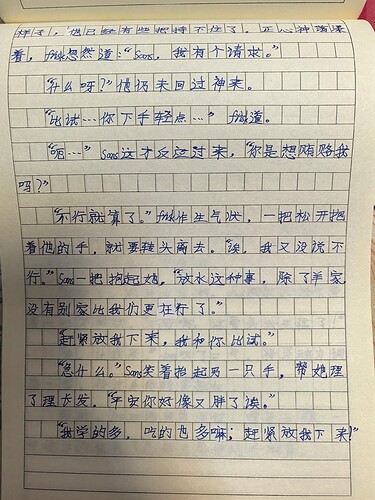 样子，她已经有些把持不住了，正心神荡漾
着，frisk忽然道：“Sans，我有个请求。”
“什么呀？”情仍未回过神来。
“比试…你下手轻点…” frisk道。
“呃…” Sans这才反应过来，“你是想贿赂我
吗？”
“不行就算了。”frisk作生气状，一把松开抱
着他的手，就要转头离去。“诶，我又没说不
行。”Sans一把抱起她，“放水这种事，除了羊家
没有别家比我们更在行了。”
“赶紧放我下来，我和你比试。”
“急什么。”Sans笑着抬起另一只手，帮她理
了理长发。“平安你好像又胖了诶。”
“我学的多，吃的也多嘛；赶紧放我下来！”